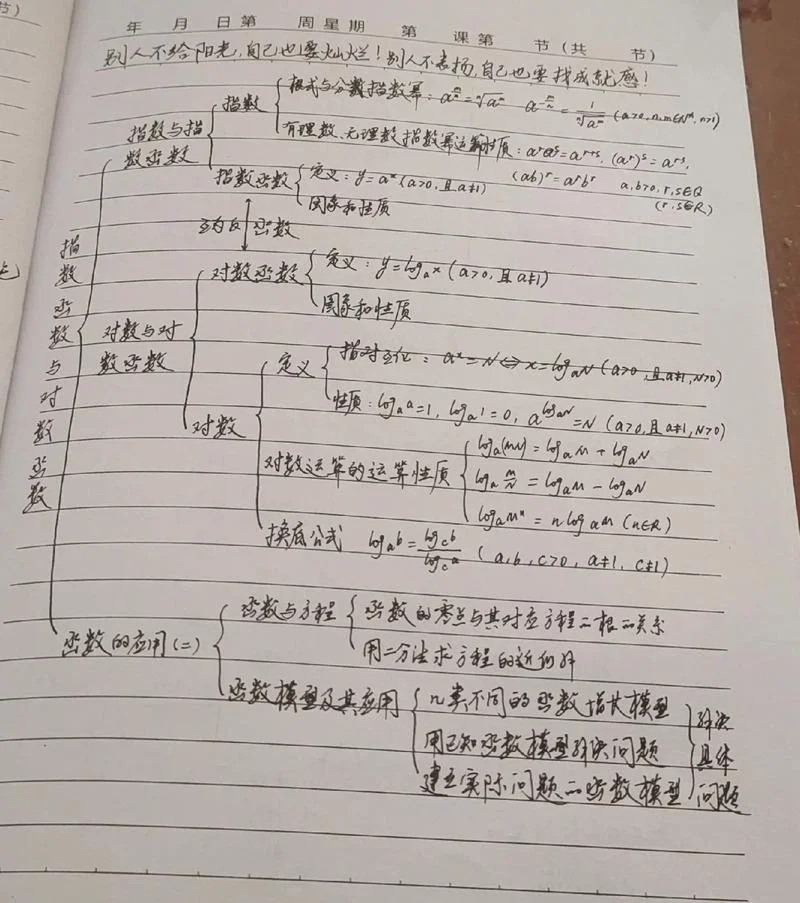 年 月 日第 周星期 第 课第 节(共 节)
别人不给阳光,自己也要灿烂!别人不表扬,自己也要找成就感!
指数函数与对数函数
指数与指数函数
指数
根式与分数指数幂:a^(m/n)=ⁿ√a^m a^(-m/n)=1/ⁿ√a^m (a>0,n,m∈N*,n>1)
有理数、无理数指数幂运算性质:a^r a^s=a^(r+s), (a^r)^s=a^(rs),
(ab)^r=a^r b^r a,b>0,r,s∈Q
(r,s∈R)
指数函数
定义:y=a^x(a>0,且a≠1)
图象和性质
互为反函数
对数与对数函数
对数函数
定义:y=log_a x(a>0,且a≠1)
图象和性质
对数
定义
指对互化:a^x=N⇔x=log_a N(a>0,且a≠1,N>0)
性质:log_a a=1, log_a 1=0, a^(log_a N)=N (a>0,且a≠1,N>0)
对数运算的运算性质
log_a(MN)=log_a M+log_a N
log_a M/N=log_a M-log_a N
log_a M^n=n log_a M (n∈R)
换底公式 log_a b=log_c b/log_c a (a,b,c>0,a≠1,c≠1)
函数的应用(二)
函数与方程
函数的零点与其对应方程的根的关系
用二分法求方程的近似解
函数模型及其应用
几类不同的函数增长模型
用已知函数模型解决问题
建立实际问题的函数模型
解决
具体
问题